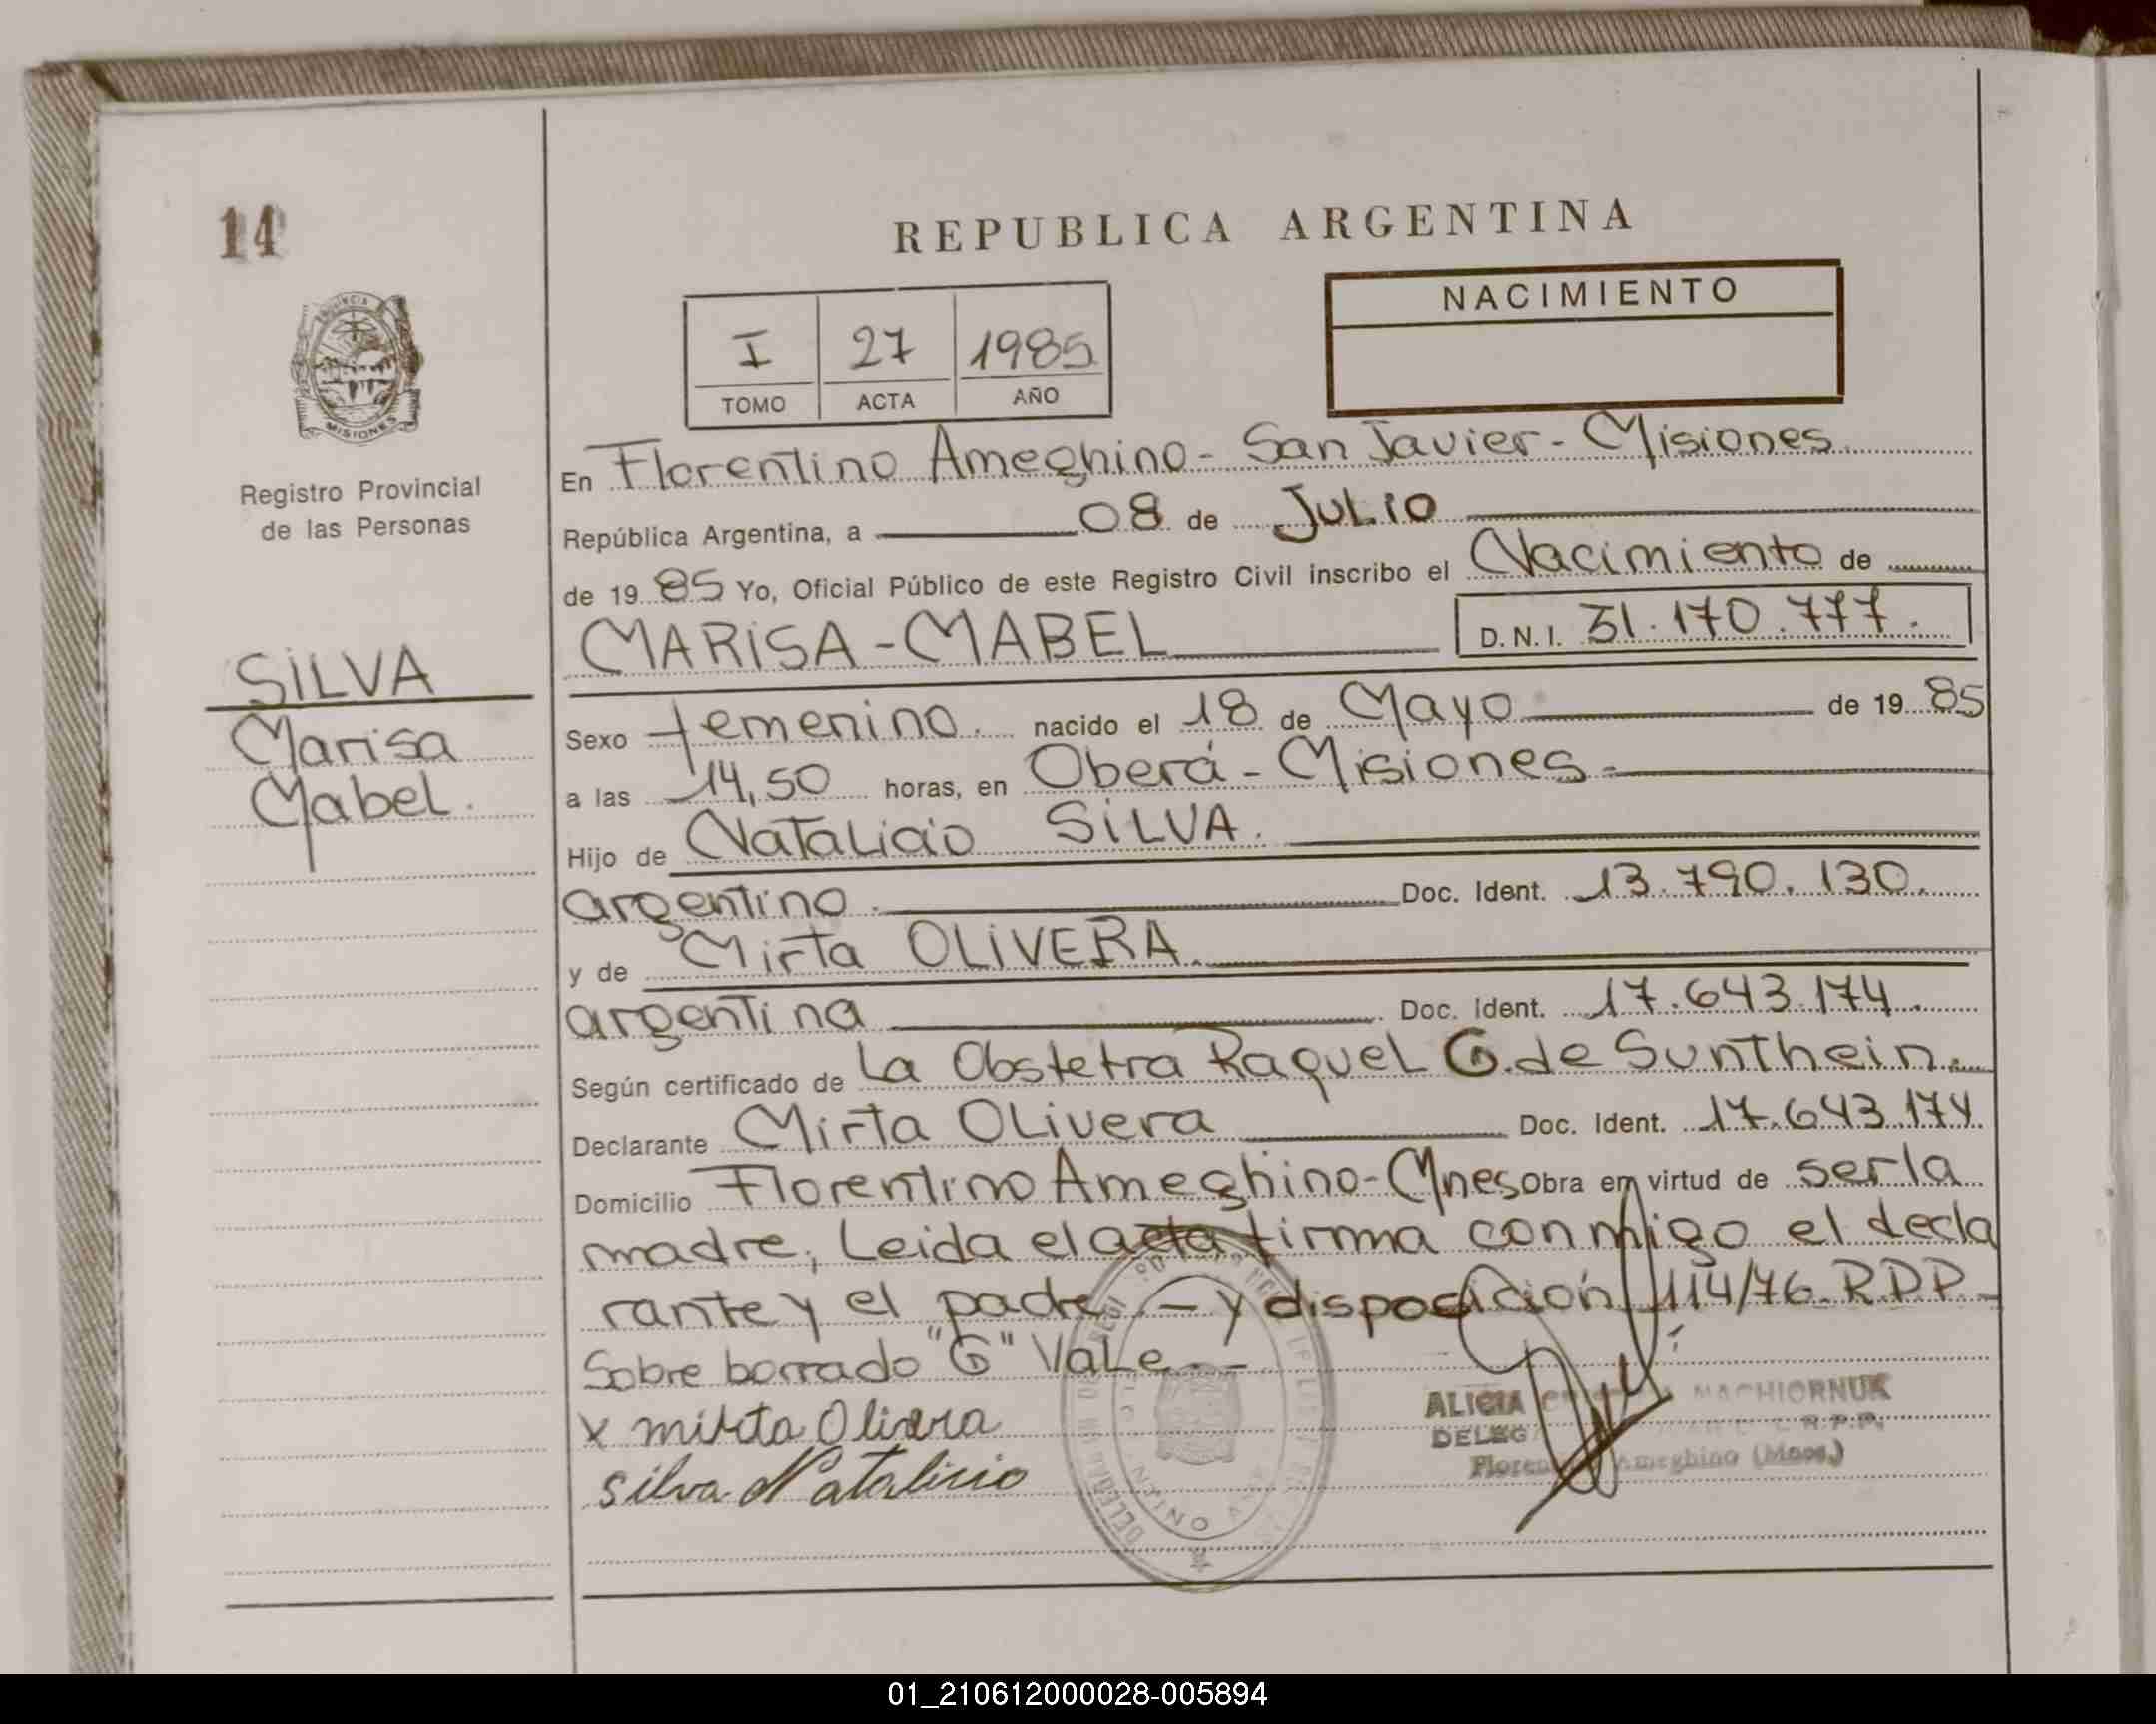 14
REPUBLICA ARGENTINA
NACIMIENTO
I 27 1985
TOMO ACTA AÑO
PROVINCIA
MISIONES
Registro Provincial
de las Personas
SILVA
Marisa
Mabel.
En Florentino Ameghino - San Javier - Misiones
República Argentina, a 08 de JULIO
de 19 85 Yo, Oficial Público de este Registro Civil inscribo el Nacimiento de
MARISA - MABEL D.N.I. 31.170.777.
Sexo femenino. nacido el 18 de Mayo de 19 85
a las 14,50 horas, en Oberá - Misiones -
Hijo de Natalicio SILVA.
argentino. Doc. Ident. 13.790.130.
y de Mirta OLIVERA.
argentina Doc. Ident. 17.643.174.
Según certificado de La Obstetra Raquel G. de Sunthein.
Declarante Mirta Olivera Doc. Ident. 17.643.174
Domicilio Florentino Ameghino - Mnes Obra en virtud de ser la
madre; Leida el acta firma conmigo el decla
rante y el padre - y disposición 114/76. R.P.P.
Sobre borrado "G" Vale -
x mirta Olivera
silva Natalicio
ALICIA NACHIORNUK
DELEG R.P.P.
Floren Ameghino (Mnes.)
01_210612000028-005894